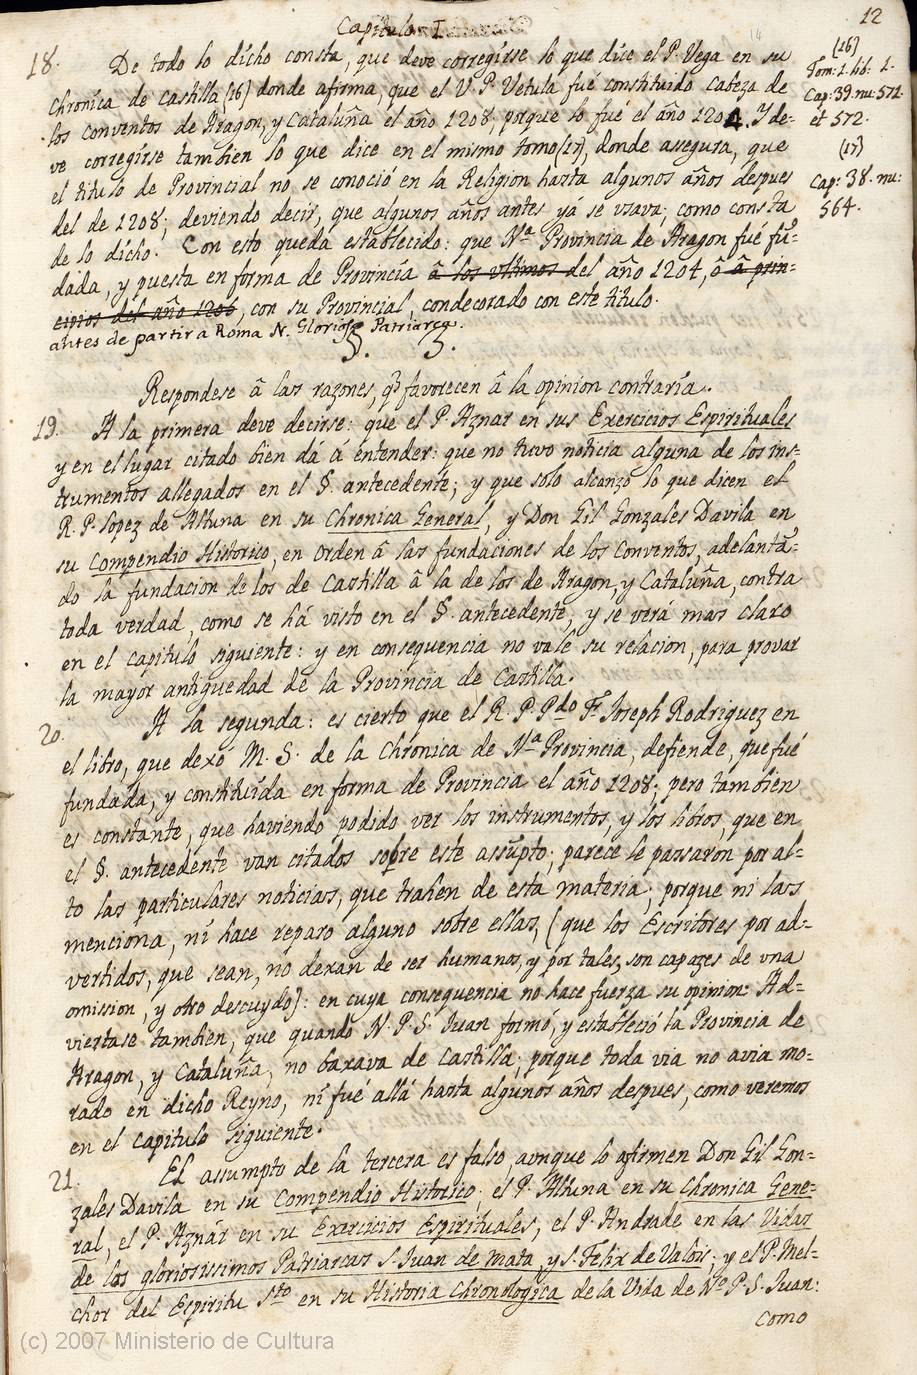 12
Capitulo I.
18. De todo lo dicho consta, que deve corregirse lo que dice el P. Vega en su
Chronica de Castilla (16) donde afirma, que el V. P. Vetula fué constituido Cabeza de
los conventos de Aragon, y Cataluña el año 1208, porque lo fué el año 1204. Y de-
ve corregirse tambien lo que dice en el mismo tomo (17), donde assegura, que
el titulo de Provincial no se conoció en la Religion hasta algunos años despues
del de 1208; deviendo decir, que algunos años antes yá se vsava; como consta
de lo dicho. Con esto queda establecido: que Nª Provincia de Aragon fué fũ-
dada, y puesta en forma de Provincia â los vltimos del año 1204, ô â prin=
cipios del año 1206, con su Provincial, condecorado con este titulo.
antes de partir a Roma N. Glorioso Patriarca.
(16)
Tom: 1. lib: 2.
Cap: 39. nu: 571.
et 572.
(17)
Cap: 38. nu:
564.
§. 3.
Respondese â las razones, q̃ favorecen â la opinion contraria.
19. A la primera deve decirse: que el P. Aznar en sus Exercicios Espirituales
y en el lugar citado bien dá á entender: que no tuvo noticia alguna de los ins=
trumentos allegados en el §. antecedente; y que solo alcanzo lo que dicen el
R. P. Lopez de Altuna en su Chronica General, y Don Gil Gonzales Davila en
su Compendio Historico, en orden â las fundaciones de los Conventos, adelantã=
do la fundacion de los de Castilla â la de los de Aragon, y Cataluña, contra
toda verdad, como se há visto en el §. antecedente, y se verá mas claro
en el capitulo siguiente: y en consequencia no vale su relacion, para provar
la mayor antiguedad de la Provincia de Castilla.
20. A la segunda: es cierto que el R. P. Pdo Fr. Joseph Rodriguez en
el libro, que dexó M. S. de la Chronica de Nª Provincia, defiende, que fué
fundada, y constituída en forma de Provincia el año 1208; pero tambien
es constante, que haviendo podido ver los instrumentos, y los libros, que en
el §. antecedente van citados sobre este assũpto; parece le passaron por al=
to las particulares noticias, que trahen de esta materia; porque ni las
menciona, ni hace reparo alguno sobre ellas, (que los Escritores por ad-
vertidos, que sean, no dexan de ser humanos, y por tales, son capazes de vna
omission, y otro descuydo): en cuya consequencia no hace fuerza su opinion. Ad=
viertase tambien, que quando N. P. S. Juan formó, y estableció la Provincia de
Aragon, y Cataluña, no baxava de Castilla; porque toda via no avia mo=
rado en dicho Reyno, ni fué allá hasta algunos años despues, como veremos
en el capitulo siguiente.
21. El assumpto de la tercera es falso, aunque lo afirmen Don Gil Gon=
zales Davila en su Compendio Historico, el P. Altuna en su Chronica Gene=
ral, el P. Aznár en su Exercicios Espirituales, el P. Andrade en las Vidas
de los gloriosissimos Patriarcas S. Juan de Mata, y S. Felix de Valois; y el P. Mel=
chor del Espiritu Sto en su Historia Chronologica de la Vida de No P. S. Juan:
como
(c) 2007 Ministerio de Cultura